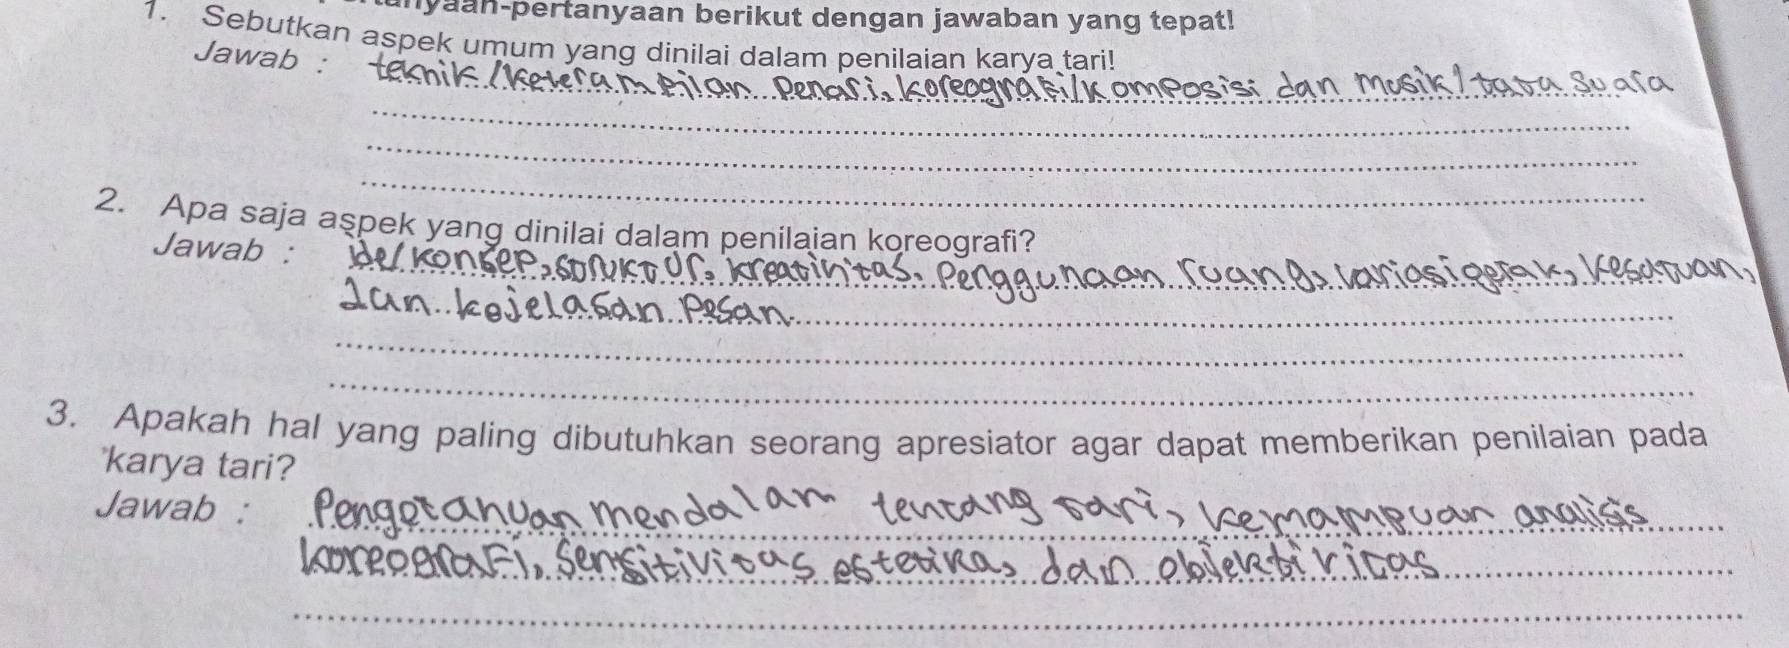 nyaan-pertanyaan berikut dengan jawaban yang tepat!
1. Sebutkan aspek umum yang dinilai dalam penilaian karya tari!
Jawab : teknik/keterampilan penari, koreografi/komposisi dan musik/tata suara
2. Apa saja aspek yang dinilai dalam penilaian koreografi?
Jawab : ide/konsep, struktur, kreativitas, penggunaan ruang, variasi gerak, kesatuan,
dan kejelasan pesan.
3. Apakah hal yang paling dibutuhkan seorang apresiator agar dapat memberikan penilaian pada
karya tari?
Jawab : Pengetahuan mendalam tentang tari, kemampuan analisis
koreografi, sensitivitas estetika, dan objektivitas